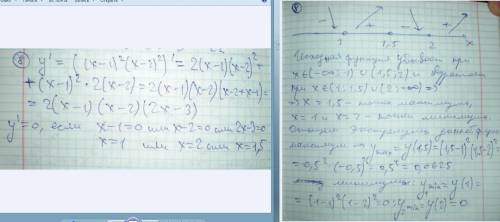 ⑧ y' = ((x-1)²(x-2)²)' = 2(x-1)(x-2)² +
+ (x-1)² · 2(x-2) = 2(x-1)(x-2)(x-2+x-1) =
= 2(x-1)(x-2)(2x-3)
y'=0, если x-1=0 или x-2=0 или 2x-3=0
x=1 или x=2 или x=1,5
⑧ - + - +
1 1,5 2 x
Исходная функция убывает при
x∈(-∞;1)∪(1,5;2) и возрастает
при x∈(1;1,5)∪(2;+∞) ⇒
⇒ x=1,5 - точка максимума,
x=1 и x=2 - точки минимума.
функции
максимум y max = y(1,5) = (1,5-1)²(1,5-2)² =
= 0,5² · (-0,5)² = 0,5⁴ = 0,0625
минимумы: y min = y(1) =
= (1-1)²(1-2)² = 0; y min = y(2) = 0